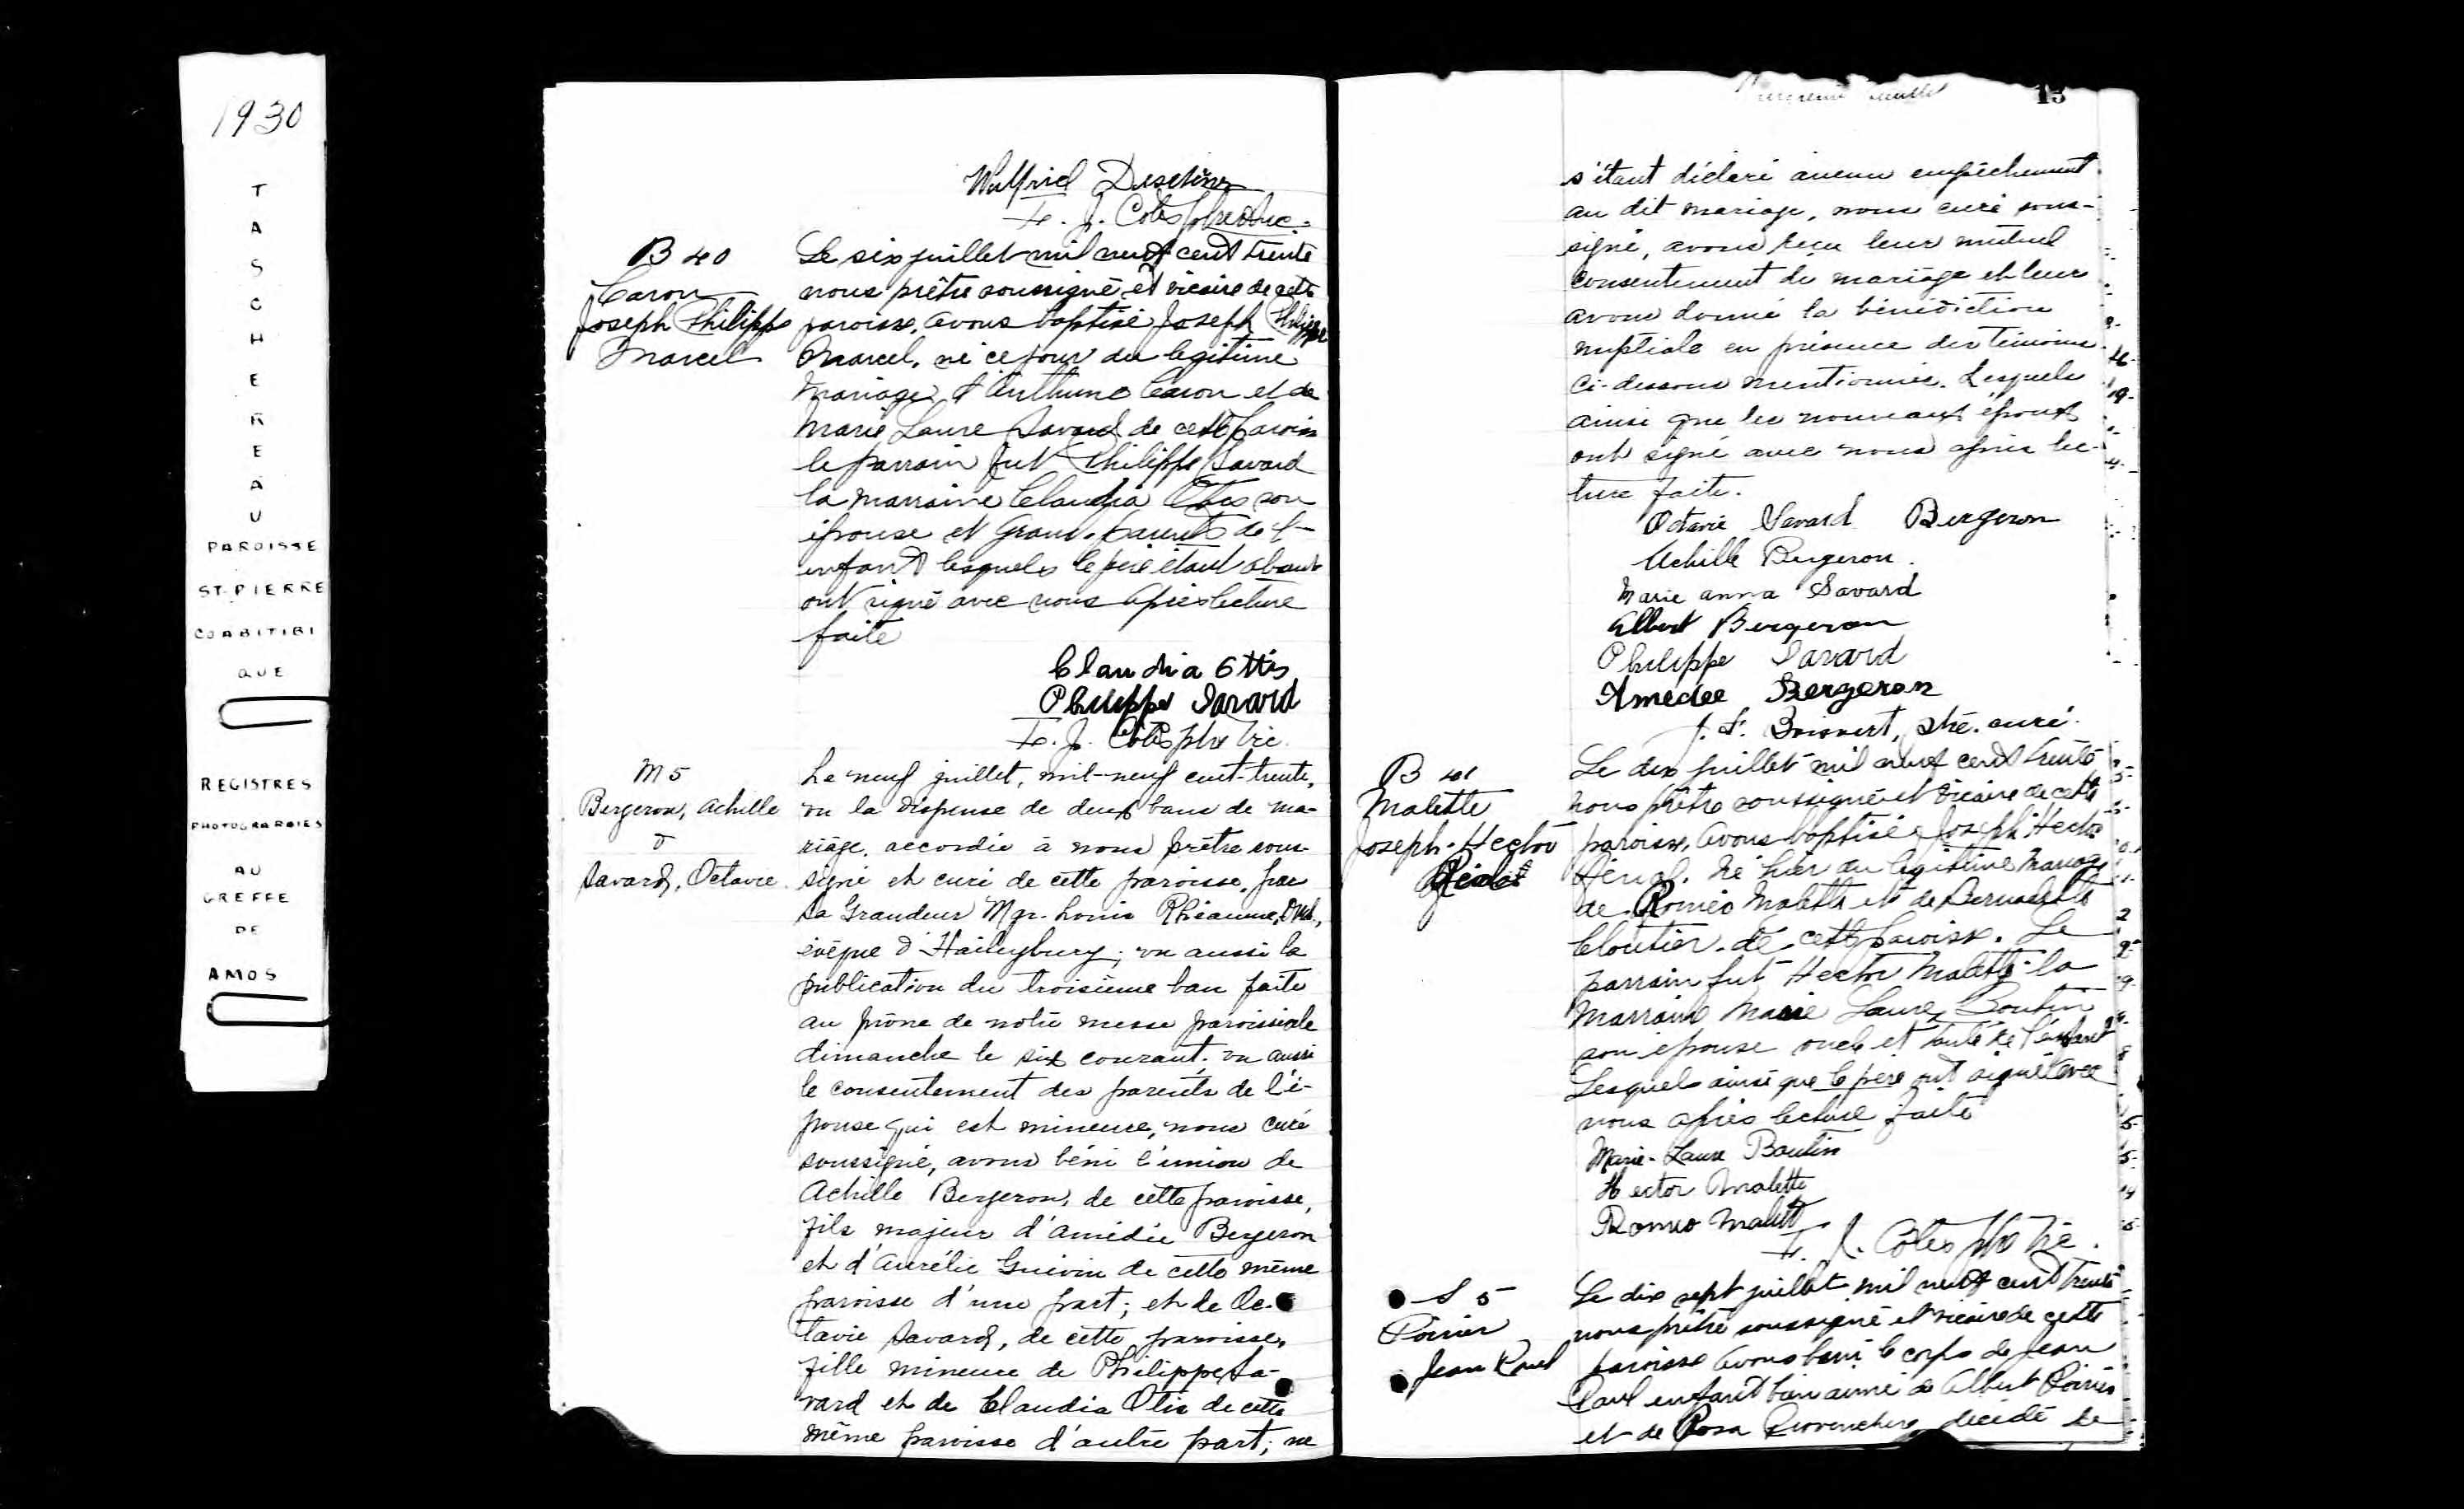 1930
T
A
S
C
H
E
R
E
A
U
PAROISSE
ST-PIERRE
CO ABITIBI
QUE
REGISTRES
PHOTOGRAPHIES
AU
GREFFE
DE
AMOS
Wulfrid
F. J. Côté
B 40
Caron
Joseph Philippe
Marcel
Le six juillet mil neuf cent trente
nous prêtre soussigné et vicaire de cette
paroisse, avons baptisé Joseph Philippe
Marcel, né ce jour du légitime
mariage d'Anthime Caron et de
Marie Laure Savard de cette paroisse
le parrain fut Philippe Savard
la marraine Claudia Otis son
épouse et grand-parents de l'
enfant lesquels le père étant absent
ont signé avec nous après lecture
faite
Claudia Ottis
Philippe Savard
F. J. Côté ptre vic.
M 5
Bergeron, Achille
&
Savard, Octavie
Le neuf juillet, mil-neuf cent-trente,
vu la dispense de deux bans de ma-
riage accordée à nous prêtre sous-
signé et curé de cette paroisse, par
Sa Grandeur Mgr. Louis Rhéaume, O.M.I.,
évêque d'Haileybury; vu aussi la
publication du troisième ban faite
au prône de notre messe paroissiale
dimanche le six courant; vu aussi
le consentement des parents de l'é-
pouse qui est mineure, nous curé
soussigné, avons béni l'union de
Achille Bergeron, de cette paroisse,
fils majeur d'Amédée Bergeron
et d'Aurélie Guévin de cette même
paroisse d'une part; et de Oc-
tavie Savard, de cette paroisse,
fille mineure de Philippe Sa-
vard et de Claudia Otis de cette
même paroisse d'autre part; ne
feuillet 13
s'étant déclaré aucun empêchement
au dit mariage, nous curé sous-
signé, avons reçu leur mutuel
consentement de mariage et leur
avons donné la bénédiction
nuptiale en présence des témoins
ci-dessous mentionnés. Lesquels
ainsi que les nouveaux époux
ont signé avec nous après lec-
ture faite.
Octavie Savard Bergeron
Achille Bergeron.
Marie anna Savard
Albert Bergeron
Philippe Savard
Amedee Bergeron
Boisvert, ptre. curé.
B 41
Malette
Joseph-Hector
Le dix juillet mil neuf cent trente
nous prêtre soussigné et vicaire de cette
paroisse, avons baptisé Joseph Hector
né hier du légitime mariage
de Roméo Malette et de Bernadette
Cloutier de cette paroisse. Le
parrain fut Hector Malette la
marraine Marie Laure Boutin
son épouse oncle et tante de l'enfant
Lesquels ainsi que le père ont signé avec
nous après lecture faite
Marie-Laure Boutin
Hector Malette
Romeo Malette
F. J. Côté ptre vic.
S 5
Poirier
Jean Paul
Le dix sept juillet mil neuf cent trente
nous prêtre soussigné et vicaire de cette
paroisse avons béni le corps de Jean
Paul enfant bien aimé de Albert Poirier
et de Rosa Provencher décédé le